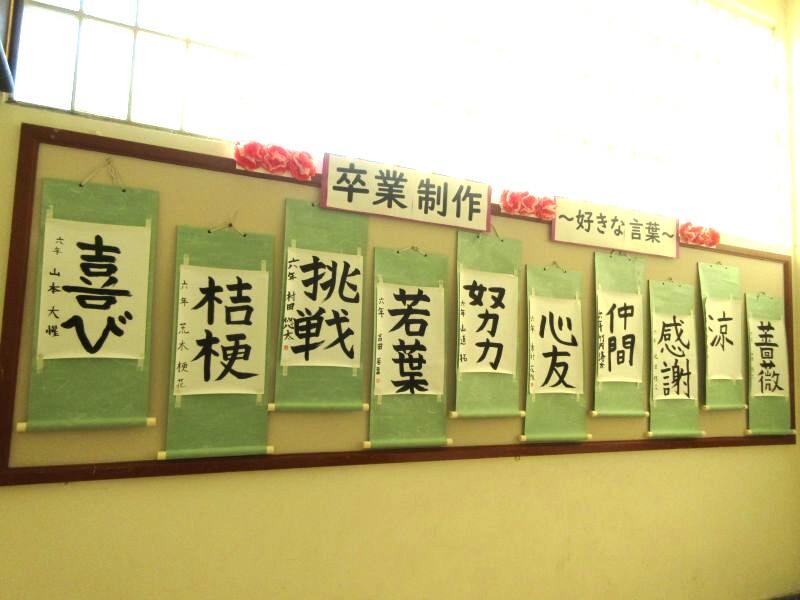 卒業制作
～好きな言葉～
喜び
六年 山本大惺
桔梗
六年 荒木梗花
挑戦
六年 村田悠太
若葉
六年
努力
六年
心友
六年
仲間
感謝
涼
薔薇